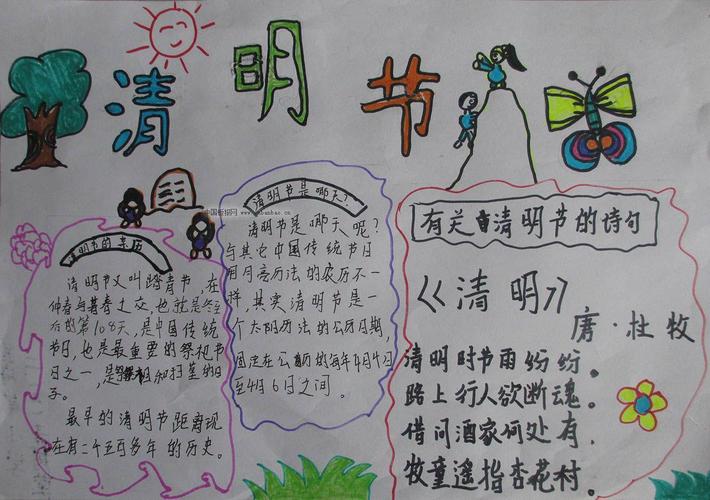 清明节
清明节的来历
清明节又叫踏青节,在
仲春与暮春之交,也就是冬至
后的第108天,是中国传统
节日,也是最重要的祭祀节
日之一,是祭祖和扫墓的日
子。
最早的清明节距离现
在有二千五百多年的历史。
清明节是哪天?
清明节是哪天呢?
与其它中国传统节日
用月亮历法的农历不一
样,其实清明节是一
个太阳历法的公历日期,
固定在公历的每年4月4日
至4月6日之间。
有关清明节的诗句
《清明》
唐·杜牧
清明时节雨纷纷。
路上行人欲断魂。
借问酒家何处有,
牧童遥指杏花村。